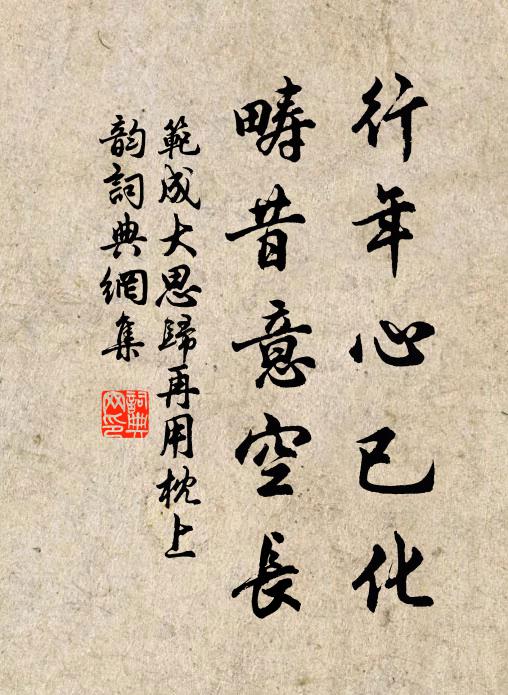 行年心已化
疇昔意空長
範成大思歸再用枕上
韵詞典網集
詞典
网印